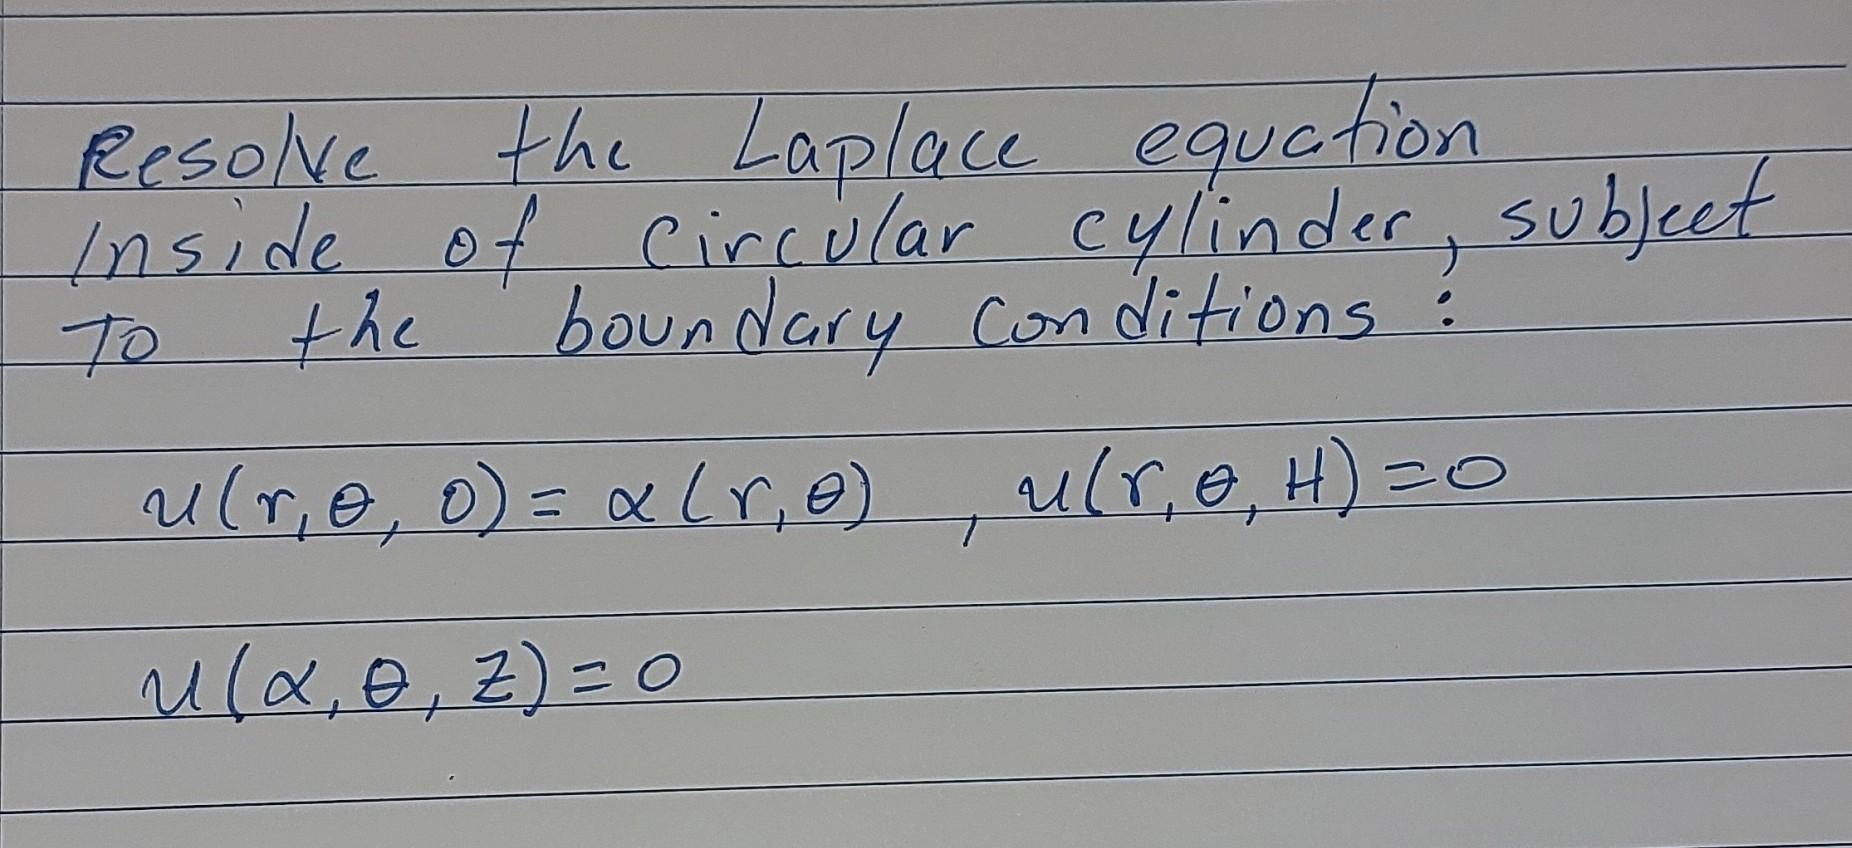 Resolve the Laplace equation
inside of circular cylinder, subject
To the boundary conditions :
u(r, θ, 0) = α(r, θ) , u(r, θ, H) = 0
u(α, θ, z) = 0